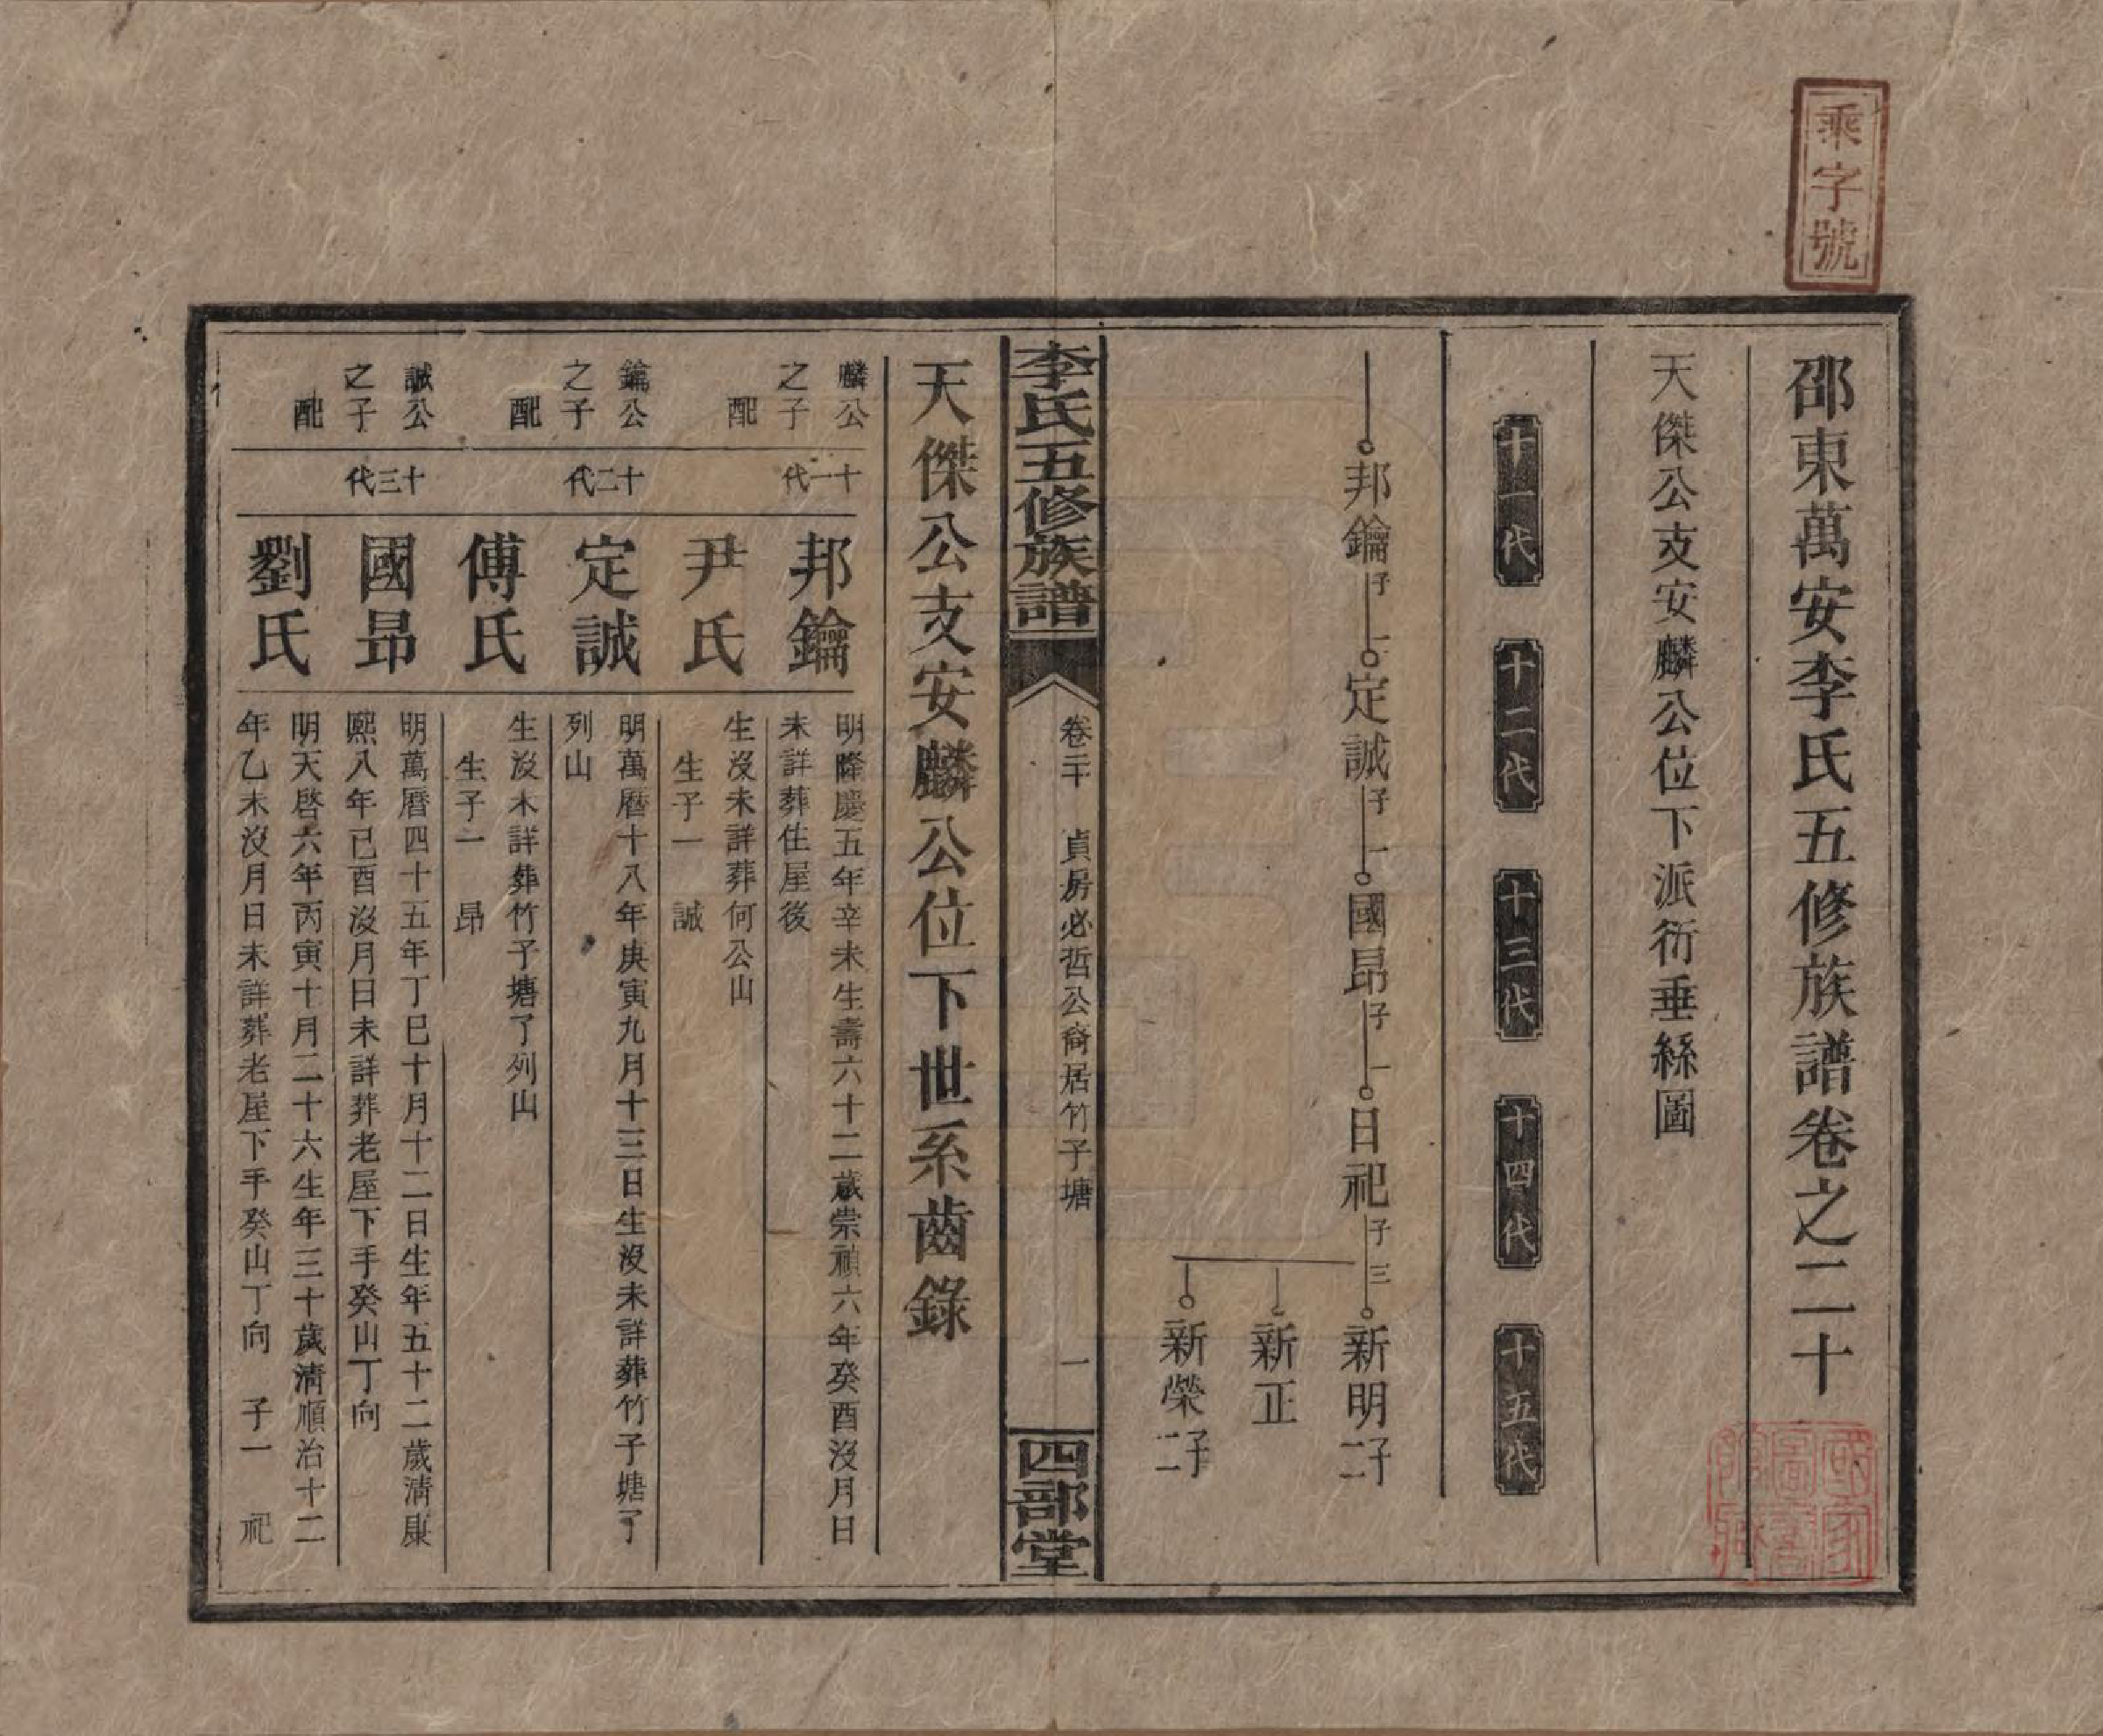 乘字號
邵東萬安李氏五修族譜卷之二十
天傑公支安麟公位下派衍垂絲圖
十一代
十二代
十三代
十四代
十五代
邦鑰子一定誠子一國昂子一日祀子三新明子二
新正
新榮子二
李氏五修族譜
卷二十
貞房必哲公裔居竹子塘
一
四部堂
天傑公支安麟公位下世系齒錄
麟公
之子
十一代
邦鑰
明隆慶五年辛未生壽六十二歲崇禎六年癸酉沒月日
未詳葬住屋後
配
尹氏
生沒未詳葬何公山
生子一 誠
鑰公
之子
十二代
定誠
明萬曆十八年庚寅九月十三日生沒未詳葬竹子塘了
列山
配
傅氏
生沒未詳葬竹子塘了列山
生子一 昂
誠公
之子
十三代
國昂
明萬曆四十五年丁巳十月十二日生年五十二歲清康
熙八年已酉沒月日未詳葬老屋下手癸山丁向
配
劉氏
明天啓六年丙寅十月二十六生年三十歲清順治十二
年乙未沒月日未詳葬老屋下手癸山丁向 子一 祀